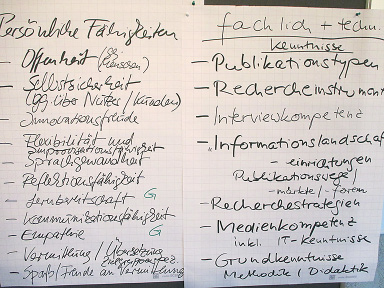 Persönliche Fähigkeiten
– Offenheit (ggü. Menschen)
– Selbstsicherheit
(ggüber Nutzer/Kunden)
– Innovationsfreude
– Flexibilität und
Improvisationsfähigkeit
– Sprachgewandheit
– Reflektionsfähigkeit
– Lernbereitschaft G
– Kommunikationsfähigkeit
– Empathie G
– Vermittlung / Übersetzung
– Spaß / Freude an Vermittlung
fachlich + techn.
Kenntnisse
– Publikationstypen
– Rechercheinstrument
– Interviewkompetenz
– Informationslandschaft
- einrichtungen
Publikationswege /
- märkte / - foren
– Recherchestrategien
– Medienkompetenz
inkl. IT-Kenntnisse
– Grundkenntnisse
Methodik / Didaktik